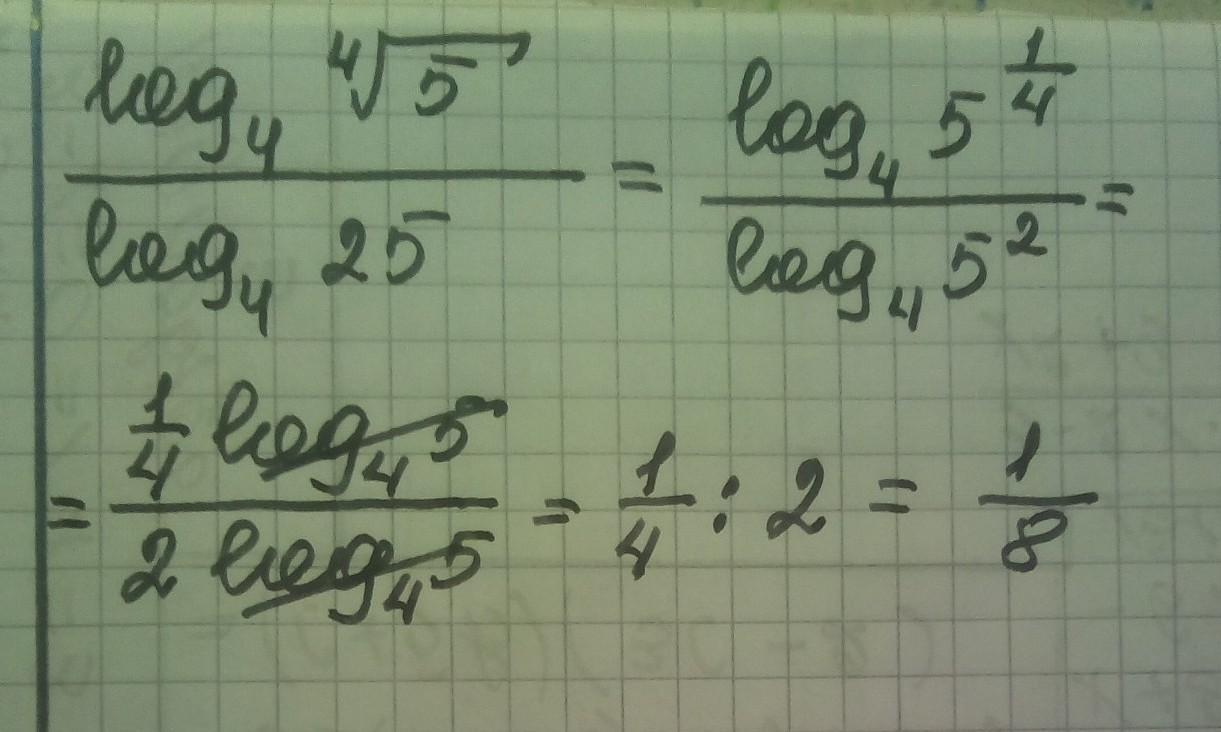 log₄ ∜5 / log₄ 25 = log₄ 5^(1/4) / log₄ 5² =
= 1/4 log₄ 5 / 2 log₄ 5 = 1/4 : 2 = 1/8